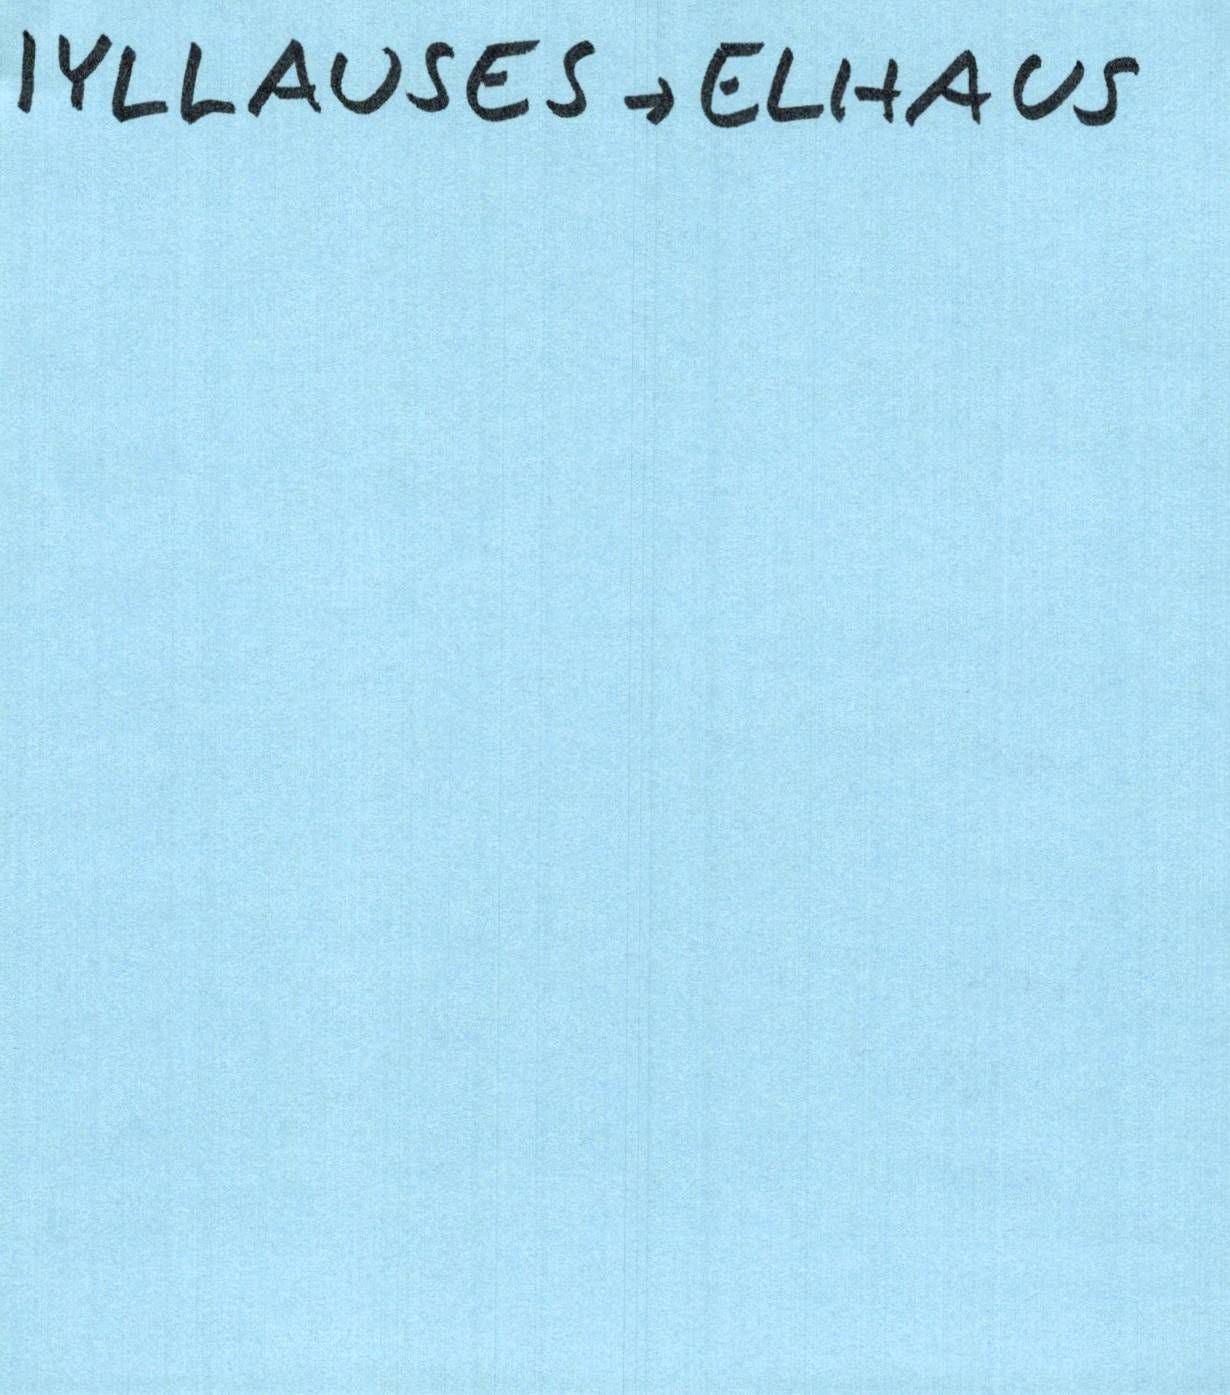 IYLLAUSES → ELHAUS